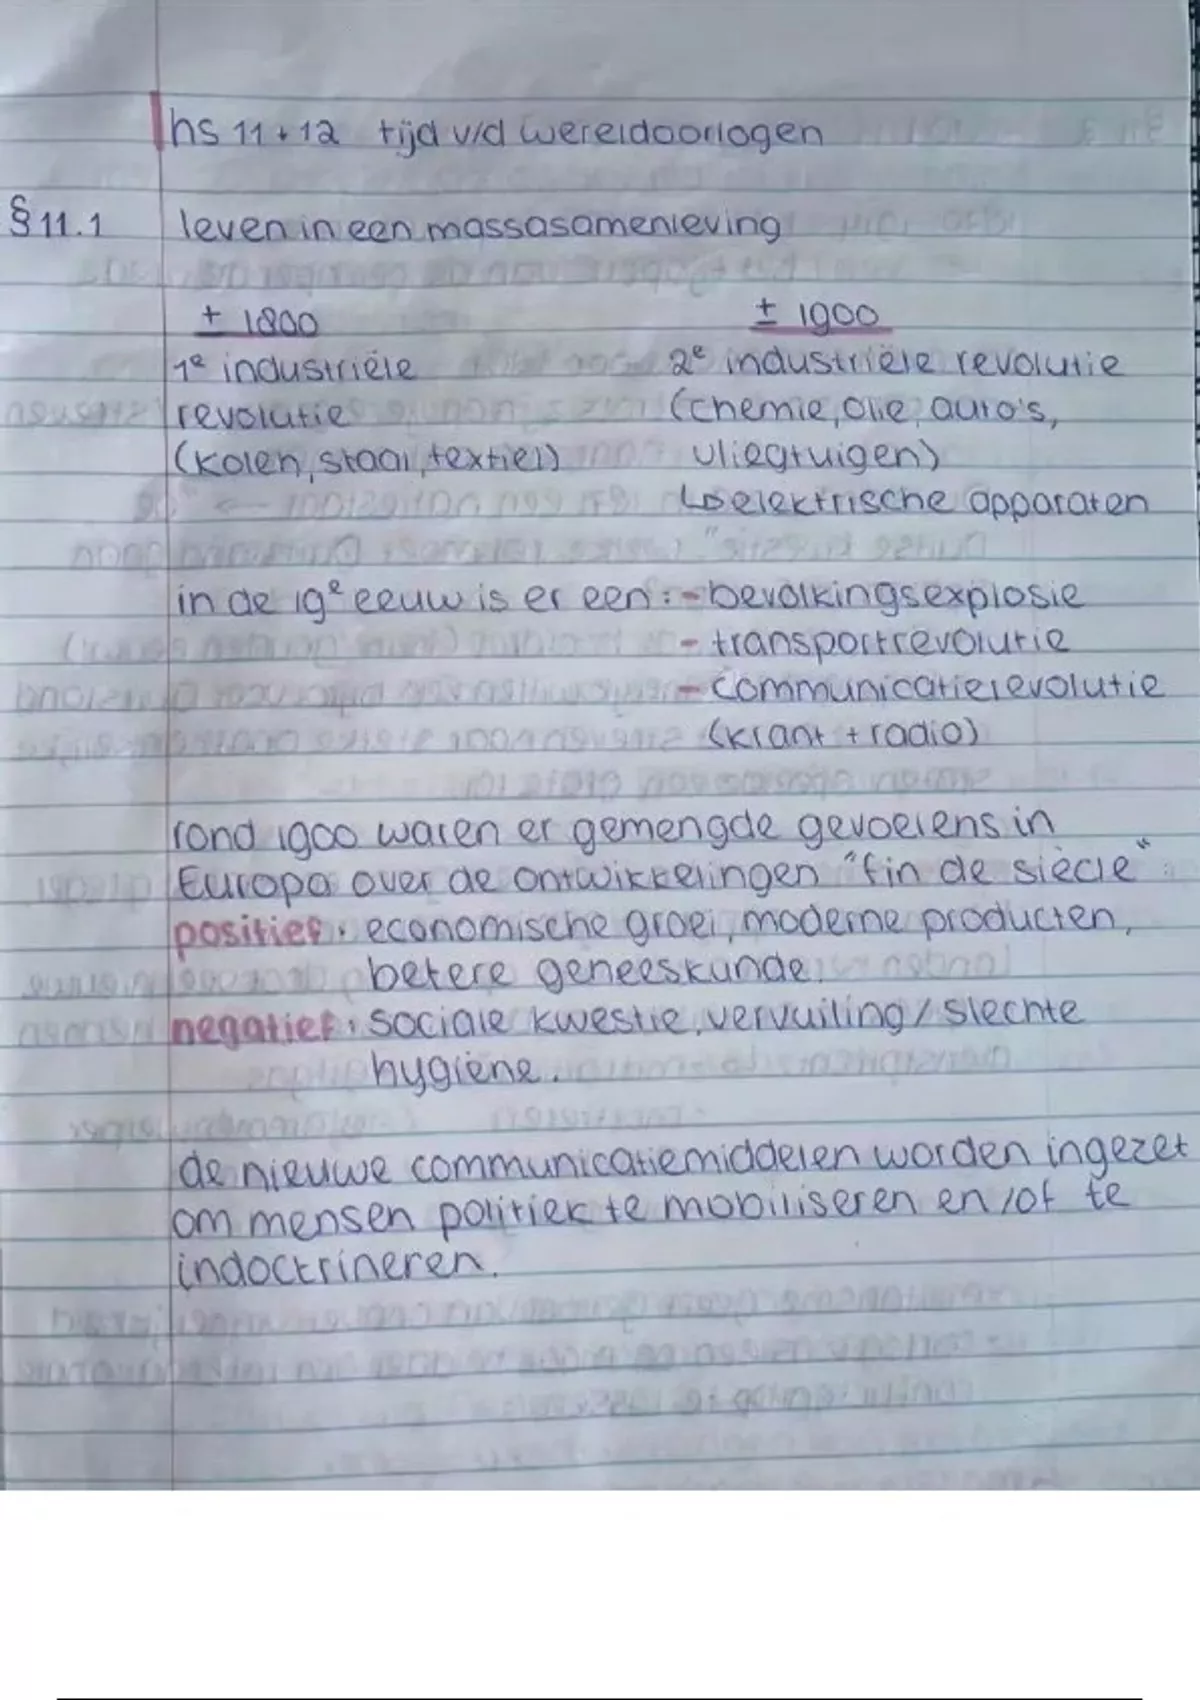 hs 11 + 12 tijd v/d wereldoorlogen
§ 11.1 leven in een massasamenleving
± 1800 ± 1900
1e industriële 2e industriële revolutie
revolutie (chemie, olie, auto's,
(kolen, staal, textiel) vliegtuigen)
↳ elektrische apparaten
in de 19e eeuw is er een: - bevolkingsexplosie
- transportrevolutie
- communicatierevolutie
(krant + radio)
rond 1900 waren er gemengde gevoelens in
Europa over de ontwikkelingen "fin de siècle"
positief: economische groei, moderne producten,
betere geneeskunde.
negatief: sociale kwestie, vervuiling / slechte
hygiëne.
de nieuwe communicatiemiddelen worden ingezet
om mensen politiek te mobiliseren en/of te
indoctrineren.